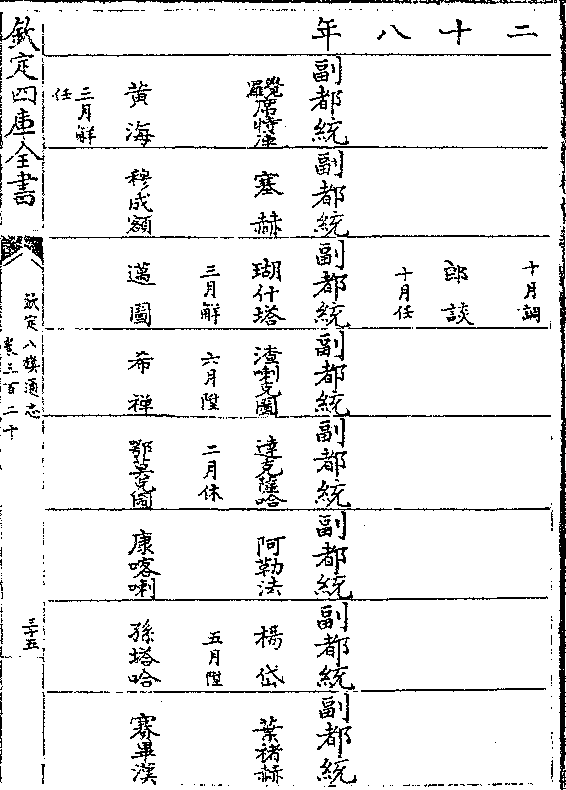 二十八年
十月調
郎談
十月任
副都統
副都統
副都統
副都統
副都統
副都統
副都統
副都統
覺羅席特庫
塞赫
瑚什塔
渣喇克圖
達克薩哈
阿勒法
楊岱
葉褚赫
三月解
六月陞
二月休
五月陞
黄海
穆成額
邁圖
希禪
鄂莫克圖
康喀喇
孫塔哈
賽畢漢
三月解
任
欽定四庫全書
欽定八旗通志
卷三百二十
三十五